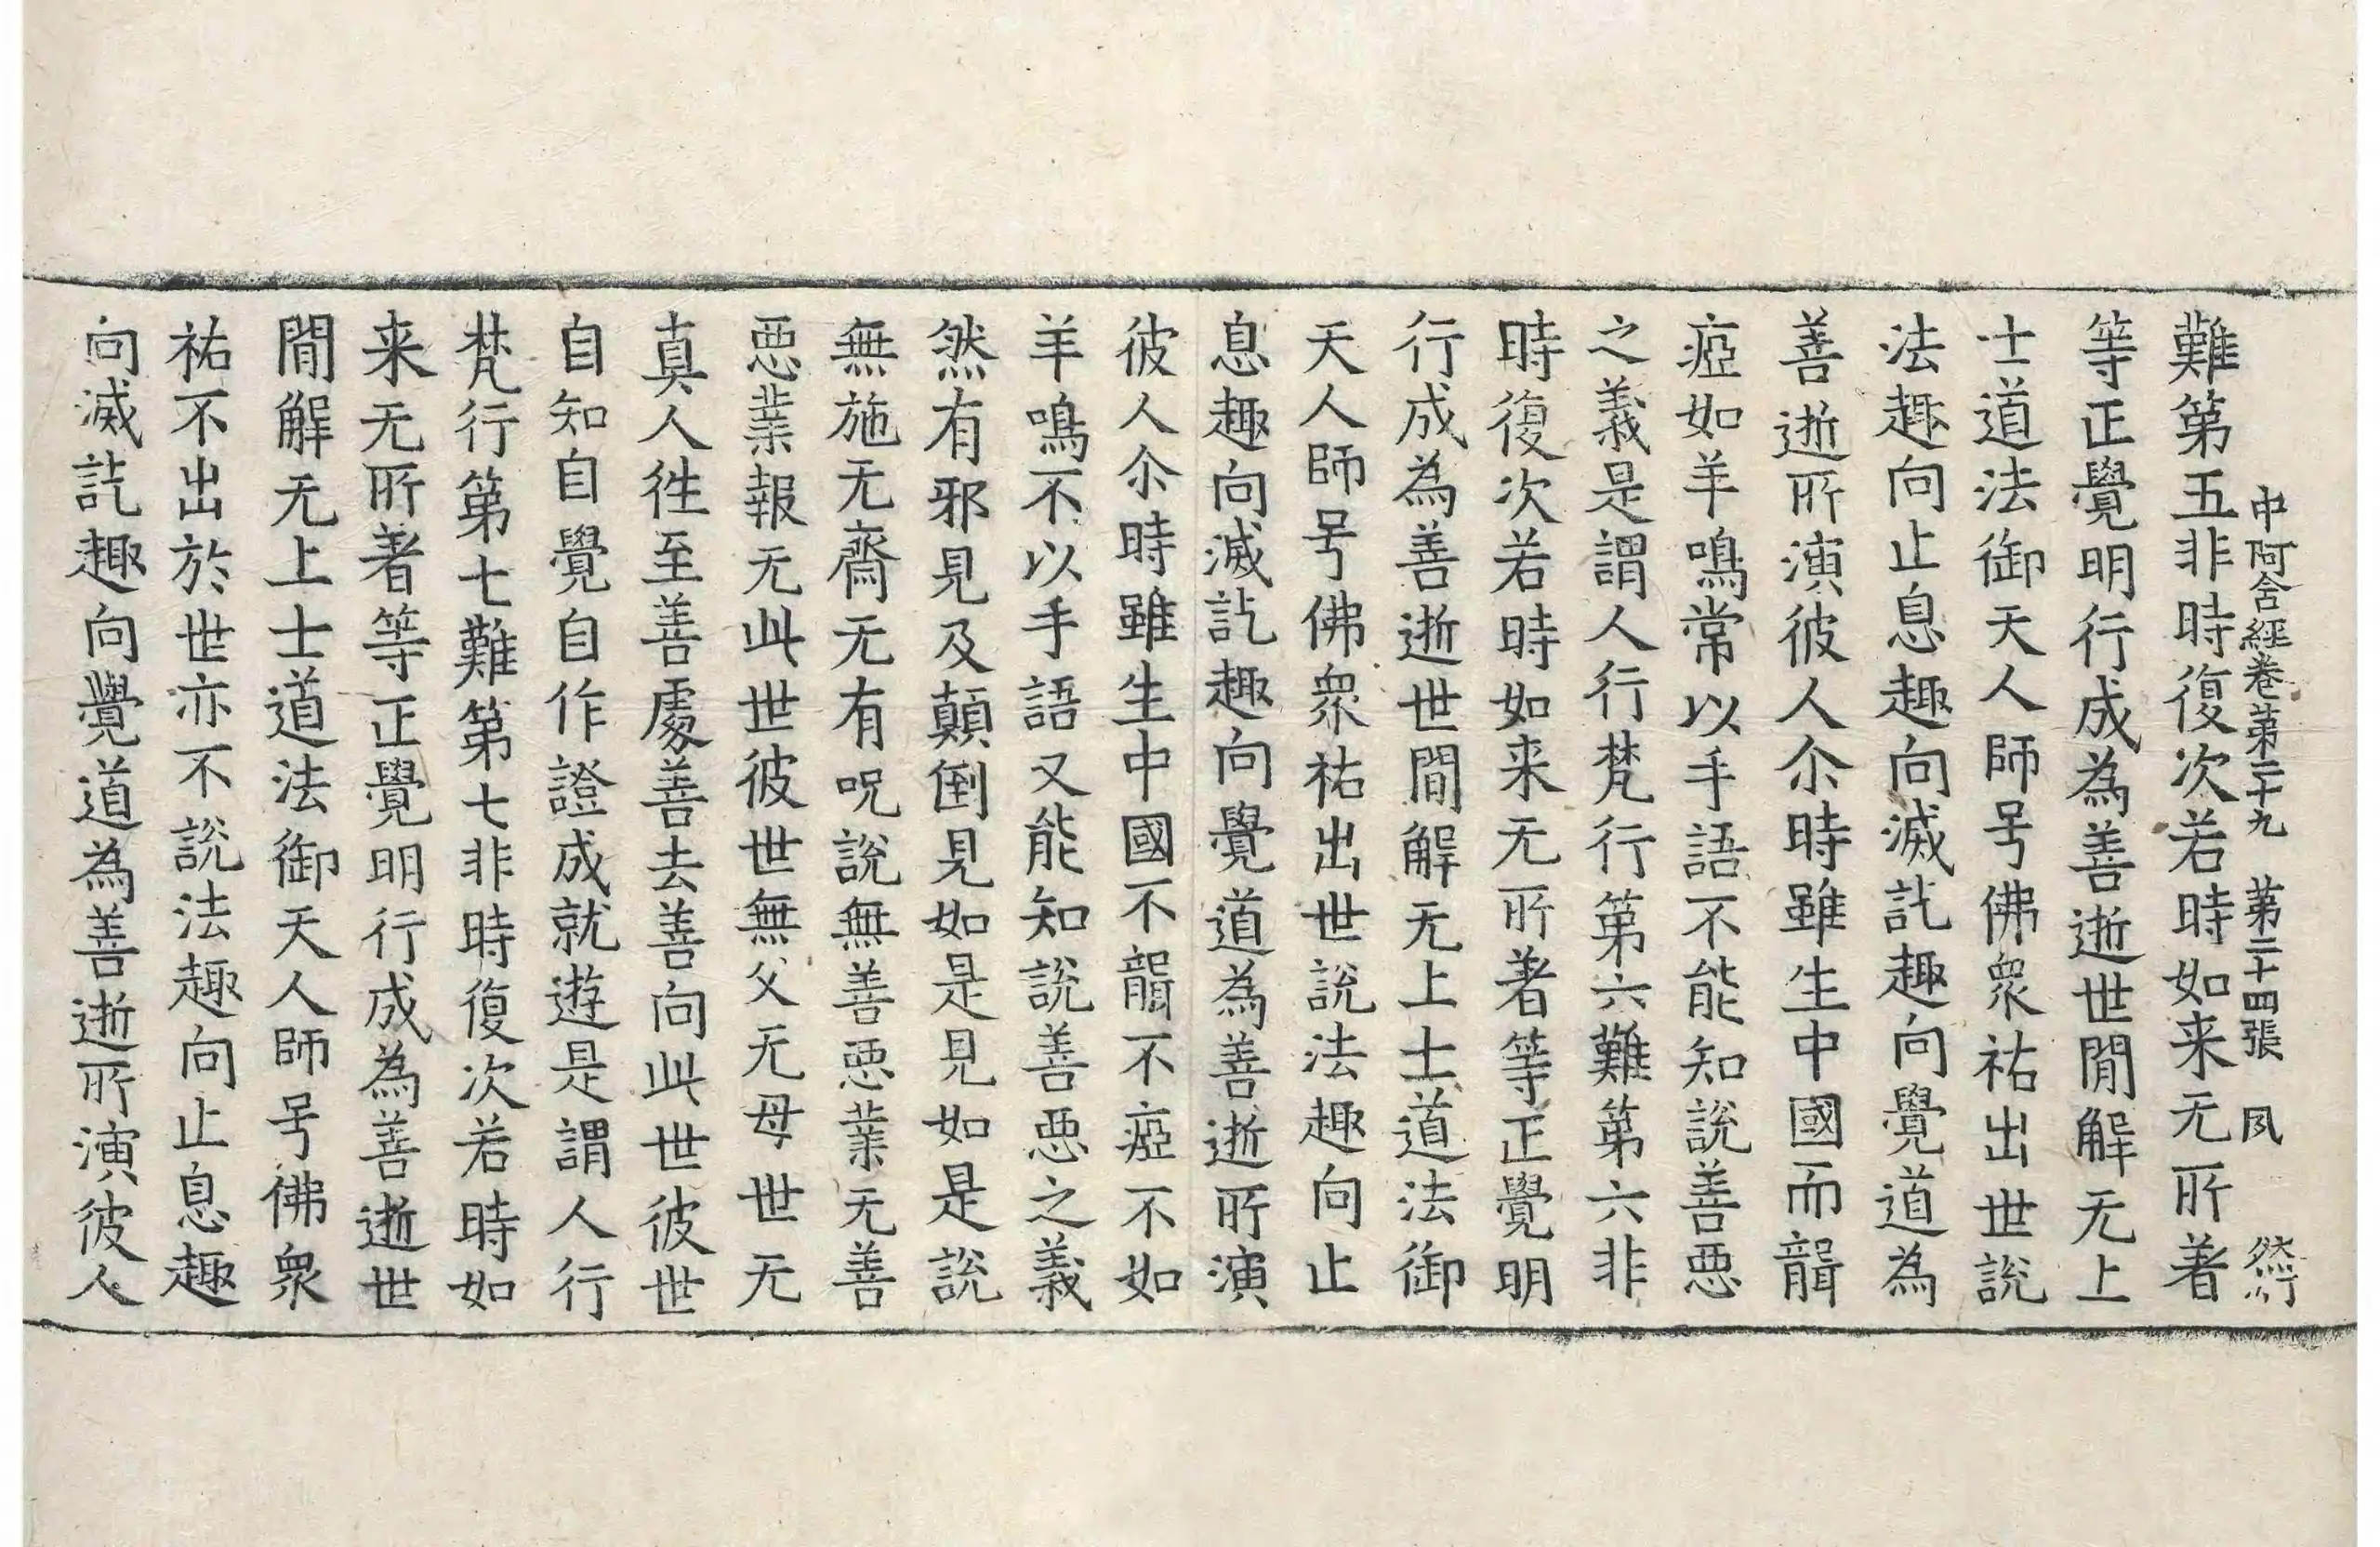 中阿含經卷第二十九 第二十四張 夙
難第五非時復次若時如来无所著
等正覺明行成為善逝世閒解无上
士道法御天人師号佛衆祐出世說
法趣向止息趣向滅訖趣向覺道為
善逝所演彼人尒時雖生中國而聾
瘂如羊鳴常以手語不能知說善惡
之義是謂人行梵行第六難第六非
時復次若時如来无所著等正覺明
行成為善逝世閒解无上士道法御
天人師号佛衆祐出世說法趣向止
息趣向滅訖趣向覺道為善逝所演
彼人尒時雖生中國不聾不瘂不如
羊鳴不以手語又能知說善惡之義
然有邪見及顛倒見如是見如是說
無施无齋无有呪說無善惡業无善
惡業報无此世彼世無父无母世无
真人徃至善處善去善向此世彼世
自知自覺自作證成就遊是謂人行
梵行第七難第七非時復次若時如
来无所著等正覺明行成為善逝世
閒解无上士道法御天人師号佛衆
祐不出於世亦不說法趣向止息趣
向滅訖趣向覺道為善逝所演彼人